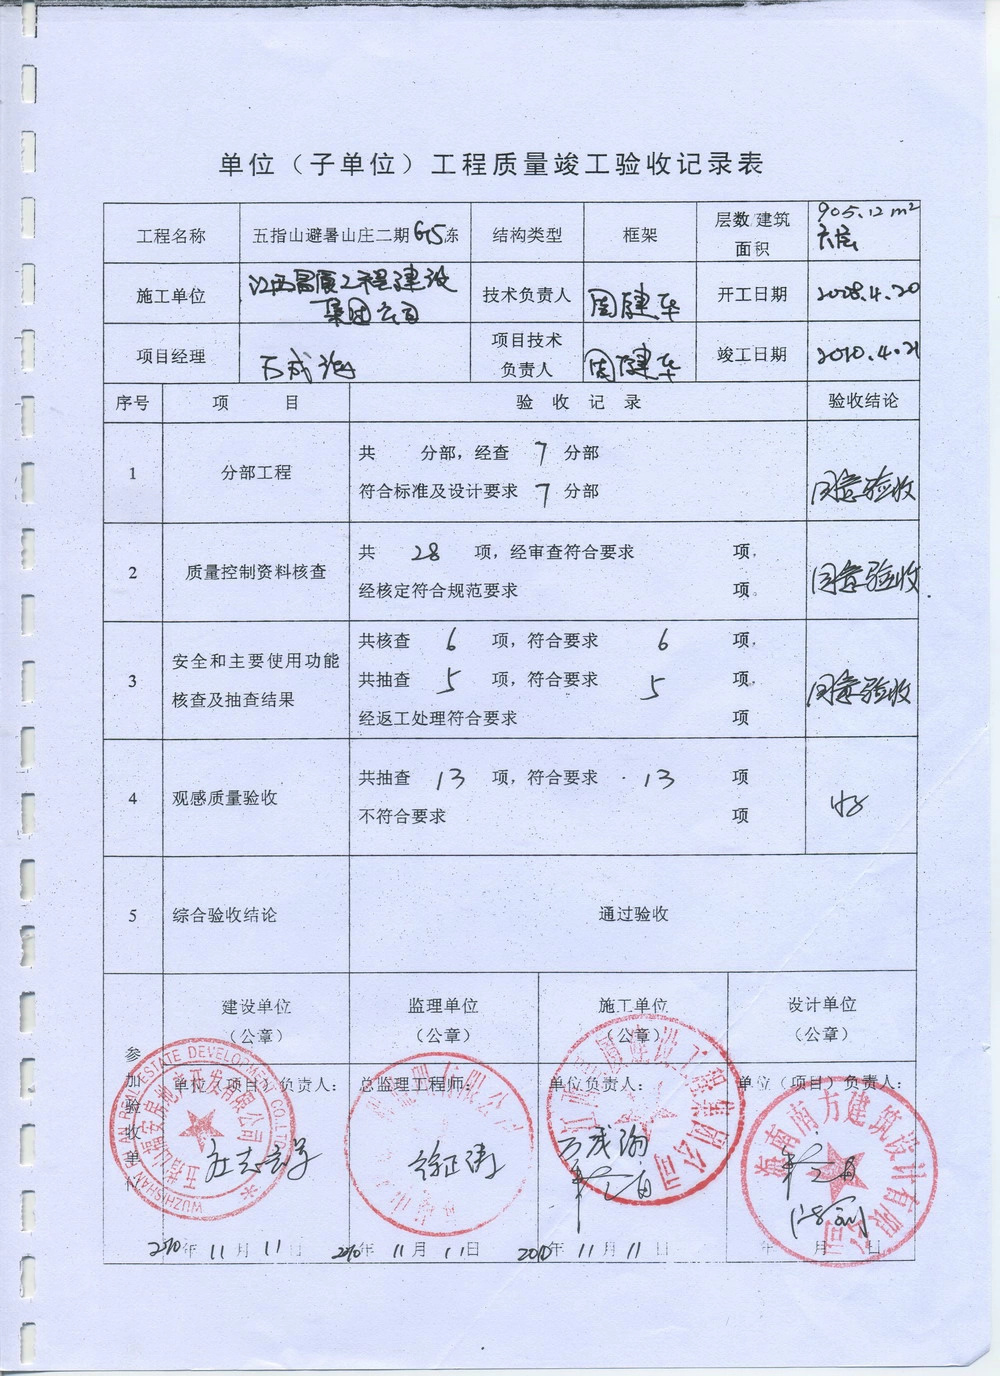 单位（子单位）工程质量竣工验收记录表
工程名称 五指山避暑山庄二期G15东 结构类型 框架 层数/建筑面积 905.12m² 六层
施工单位 江西昌厦工程建设集团公司 技术负责人 周健华 开工日期 2008.4.20
项目经理 万成渝 项目技术负责人 周健华 竣工日期 2010.4.21
序号 项目 验收记录 验收结论
1 分部工程 共 分部，经查 7 分部
符合标准及设计要求 7 分部 同意验收
2 质量控制资料核查 共 28 项，经审查符合要求 项，
经核定符合规范要求 项。 同意验收
3 安全和主要使用功能核查及抽查结果 共核查 6 项，符合要求 6 项，
共抽查 5 项，符合要求 5 项，
经返工处理符合要求 项 同意验收
4 观感质量验收 共抽查 13 项，符合要求 13 项
不符合要求 项 好
5 综合验收结论 通过验收
参加验收单位
建设单位（公章） 监理单位（公章） 施工单位（公章） 设计单位（公章）
单位（项目）负责人： 总监理工程师： 单位负责人： 单位（项目）负责人：
WUZHISHAN REAL ESTATE DEVELOPMENT CO.LTD
房地产开发有限公司
建设工程集团公司
海南南方建筑设计有限公司
徐正涛
万成渝
2010年11月11日 2010年11月11日 2010年11月11日 年 月 日